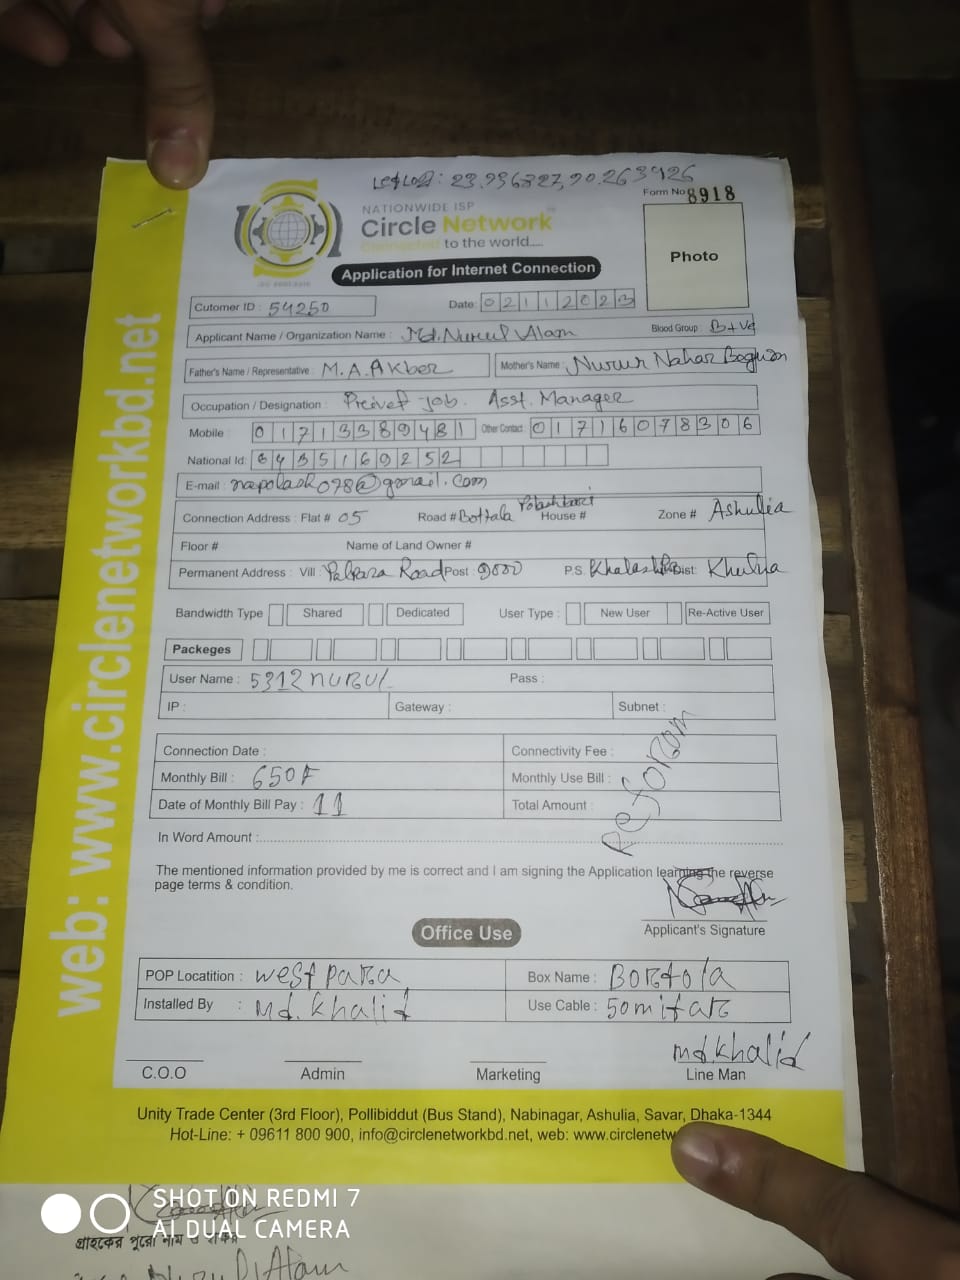 23.936827,90.263926
Form No 8918
NATIONWIDE ISP
Circle Network
Connected to the world.....
Photo
Application for Internet Connection
Cutomer ID : 54250
Date: 02112023
Applicant Name / Organization Name : Md. Nurul Alam
Blood Group : B+ve
Father's Name / Representative : M.A.Akber
Mother's Name : Nurur Nahar Begum
Occupation / Designation : Privet job. Asst. Manager
Mobile : 01713389481 Other Contact: 01716078306
National Id: 6435169252
E-mail : napolash098@gmail.com
Connection Address : Flat # 05 Road # Bottala House # Zone # Ashulia
Floor # Name of Land Owner #
Permanent Address : Vill: Palpara Road Post : 9000 P.S. Dist: Khulna
Bandwidth Type Shared Dedicated User Type : New User Re-Active User
Packeges
User Name : 5312nurul Pass :
IP : Gateway : Subnet :
Connection Date : Connectivity Fee :
Monthly Bill : 650 Monthly Use Bill :
Date of Monthly Bill Pay : 11 Total Amount :
Reforom
In Word Amount :
The mentioned information provided by me is correct and I am signing the Application learning the reverse
page terms & condition.
Applicant's Signature
Office Use
POP Locatition : west para Box Name : Bortola
Installed By : Md. Khalid Use Cable : 50mitar
md.khalid
C.O.O Admin Marketing Line Man
Unity Trade Center (3rd Floor), Pollibiddut (Bus Stand), Nabinagar, Ashulia, Savar, Dhaka-1344
Hot-Line: + 09611 800 900, info@circlenetworkbd.net, web: www.circlenetw
web: www.circlenetworkbd.net
SHOT ON REDMI 7
AI DUAL CAMERA
গ্রাহকের পুরো নাম ও
Alam